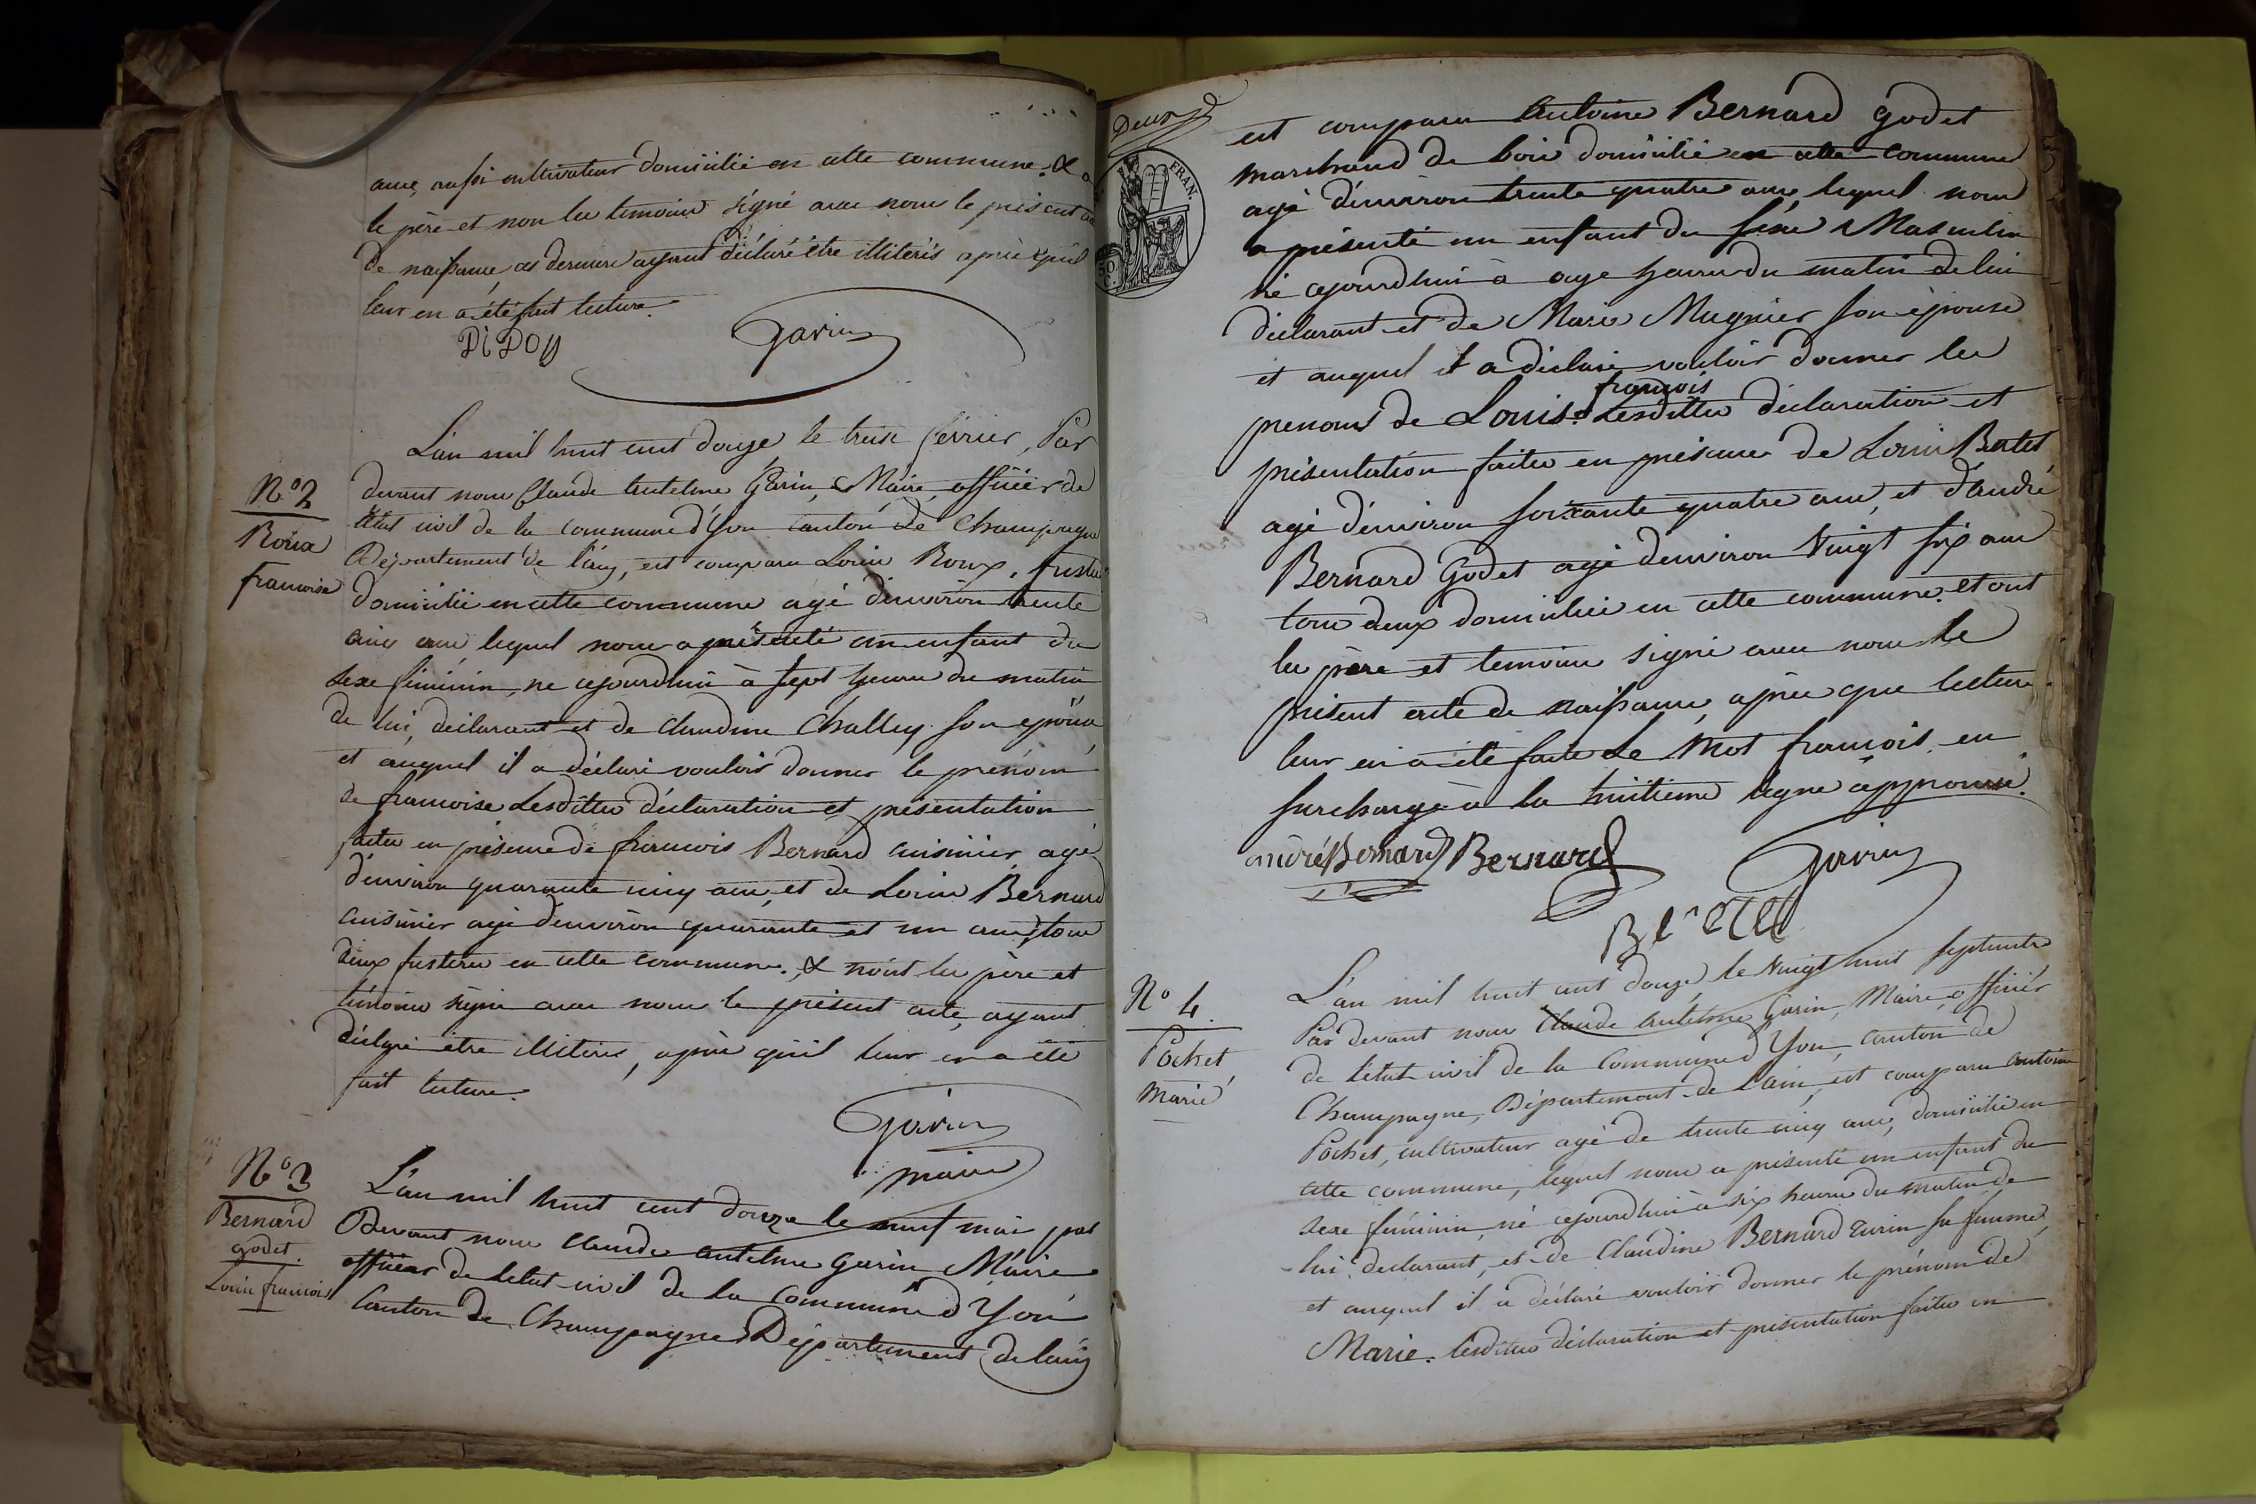 ans, aussi cultivateur domicilié en cette commune. & a
le père et non les temoins signé avec nous le présent
de naissance, ces derniers ayant déclaré être illiterés après qu'il
leur en a été fait lecture.
DiDOY Garin
L'an mil huit cent douze, le treize février, Par
devant nous Claude Antelme Garin, Maire, officier de
N° 2
l'état civil de la commune d'Yon canton de Champagne
Roux
Département de l'ain, est comparu Louis Roux, fustier
francoise
domicilié en cette commune agé d'environ trente
cinq ans, lequel nous a présenté un enfant du
sexe féminin, né cejourdhui à sept heures du matin
de lui, déclarant et de Claudine Challey son épouse
et auquel il a déclaré vouloir donner le prénom
de francoise Lesdittes déclaration et présentation
faites en présence de francois Bernard cuisinier agé
d'environ quarante cinq ans, et de Louis Bernard
cuisinier agé d'environ quarante et un ans, tous
deux fustiers en cette commune. & n'ont les père et
témoins signé avec nous le présent acte, ayant
déclaré etre illiterés, après qu'il leur en a été
fait lecture.
Garin
maire
N° 3
L'an mil huit cent douze le neuf mai par
Bernard
Devant nous Claude Antelme Garin Maire
godet.
officier de l'etat civil de la Commune d'Yon
Louis francois
Canton de Champagne Département de l'ain
Deux
FRAN.
50.
C.
est comparu Antoine Bernard Godet
marchand de bois domicilié en cette commune
agé d'environ trente quatre ans, lequel nous
a présenté un enfant du sexe Masculin
né cejourdhui à onze heures du matin de lui
déclarant et de Marie Mugnier son épouse
et auquel il a déclaré vouloir donner les
françois
prenoms de Louis. Lesdittes déclaration et
présentation faites en présence de Louis Bertet
agé d'environ soixante quatre ans, et d'andré
Bernard Godet agé d'environ Vingt six ans
tous deux domiciliés en cette commune. et ont
les père et temoins signé avec nous le
présent acte de naissance, après que lecture
leur en a été faite Le Mot françois, en
surcharge à la huitième ligne approuvé.
andré Bernard Bernard Garin
L'an mil huit cent douze, le Vingt huit septembre
N° 4.
Par devant nous Claude Antelme Garin, Maire, officier
Pochet,
de l'état civil de la Commune d'Yon, canton de
Marie
Champagne, Département de l'ain, est comparu antoine
Pochet, cultivateur agé de trente cinq ans, domicilié en
cette commune, lequel nous a présenté un enfant du
sexe féminin, né cejourdhui à six heures du matin de
lui déclarant, et de Claudine Bernard Turin sa femme,
et auquel il a déclaré vouloir donner le prénom de
Marie. lesdittes déclaration et présentation faites en